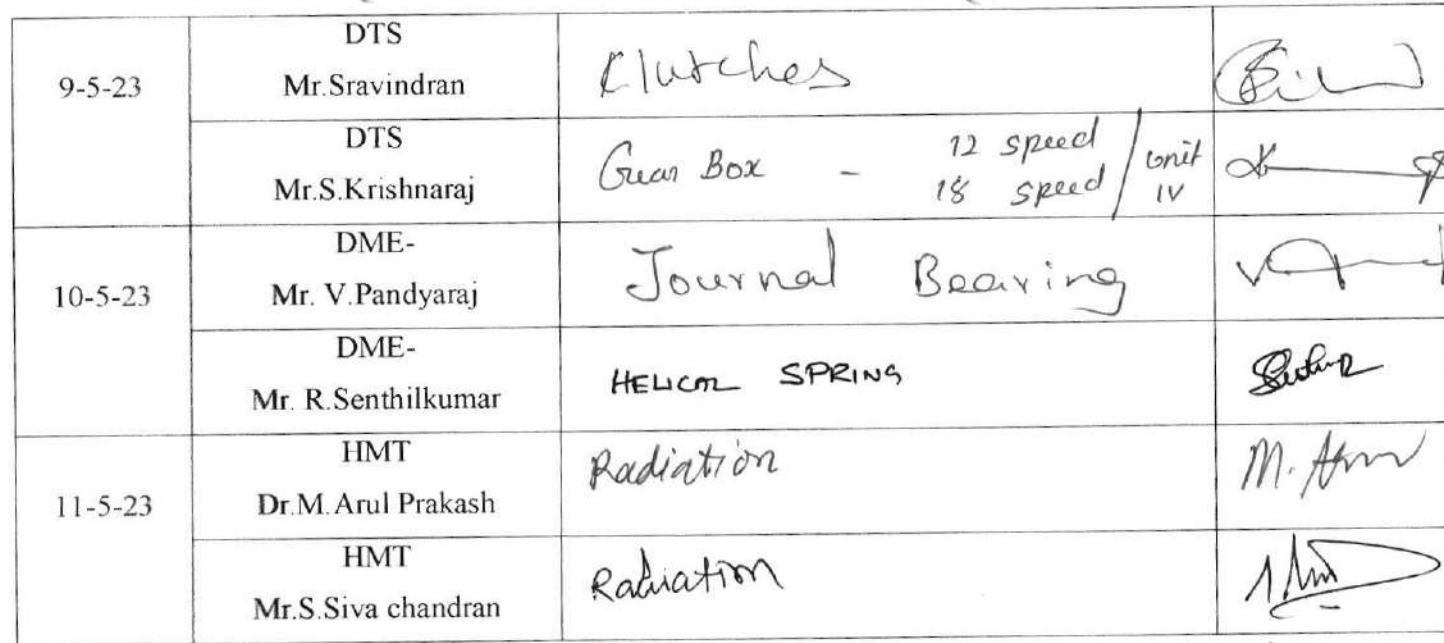 9-5-23
DTS
Mr.Sravindran
Clutches
DTS
Mr.S.Krishnaraj
Gear Box - 12 speed / unit
18 speed IV
10-5-23
DME-
Mr. V.Pandyaraj
Journal Bearing
DME-
Mr. R.Senthilkumar
HELICAL SPRING
11-5-23
HMT
Dr.M.Arul Prakash
Radiation
M.
HMT
Mr.S.Siva chandran
Radiation